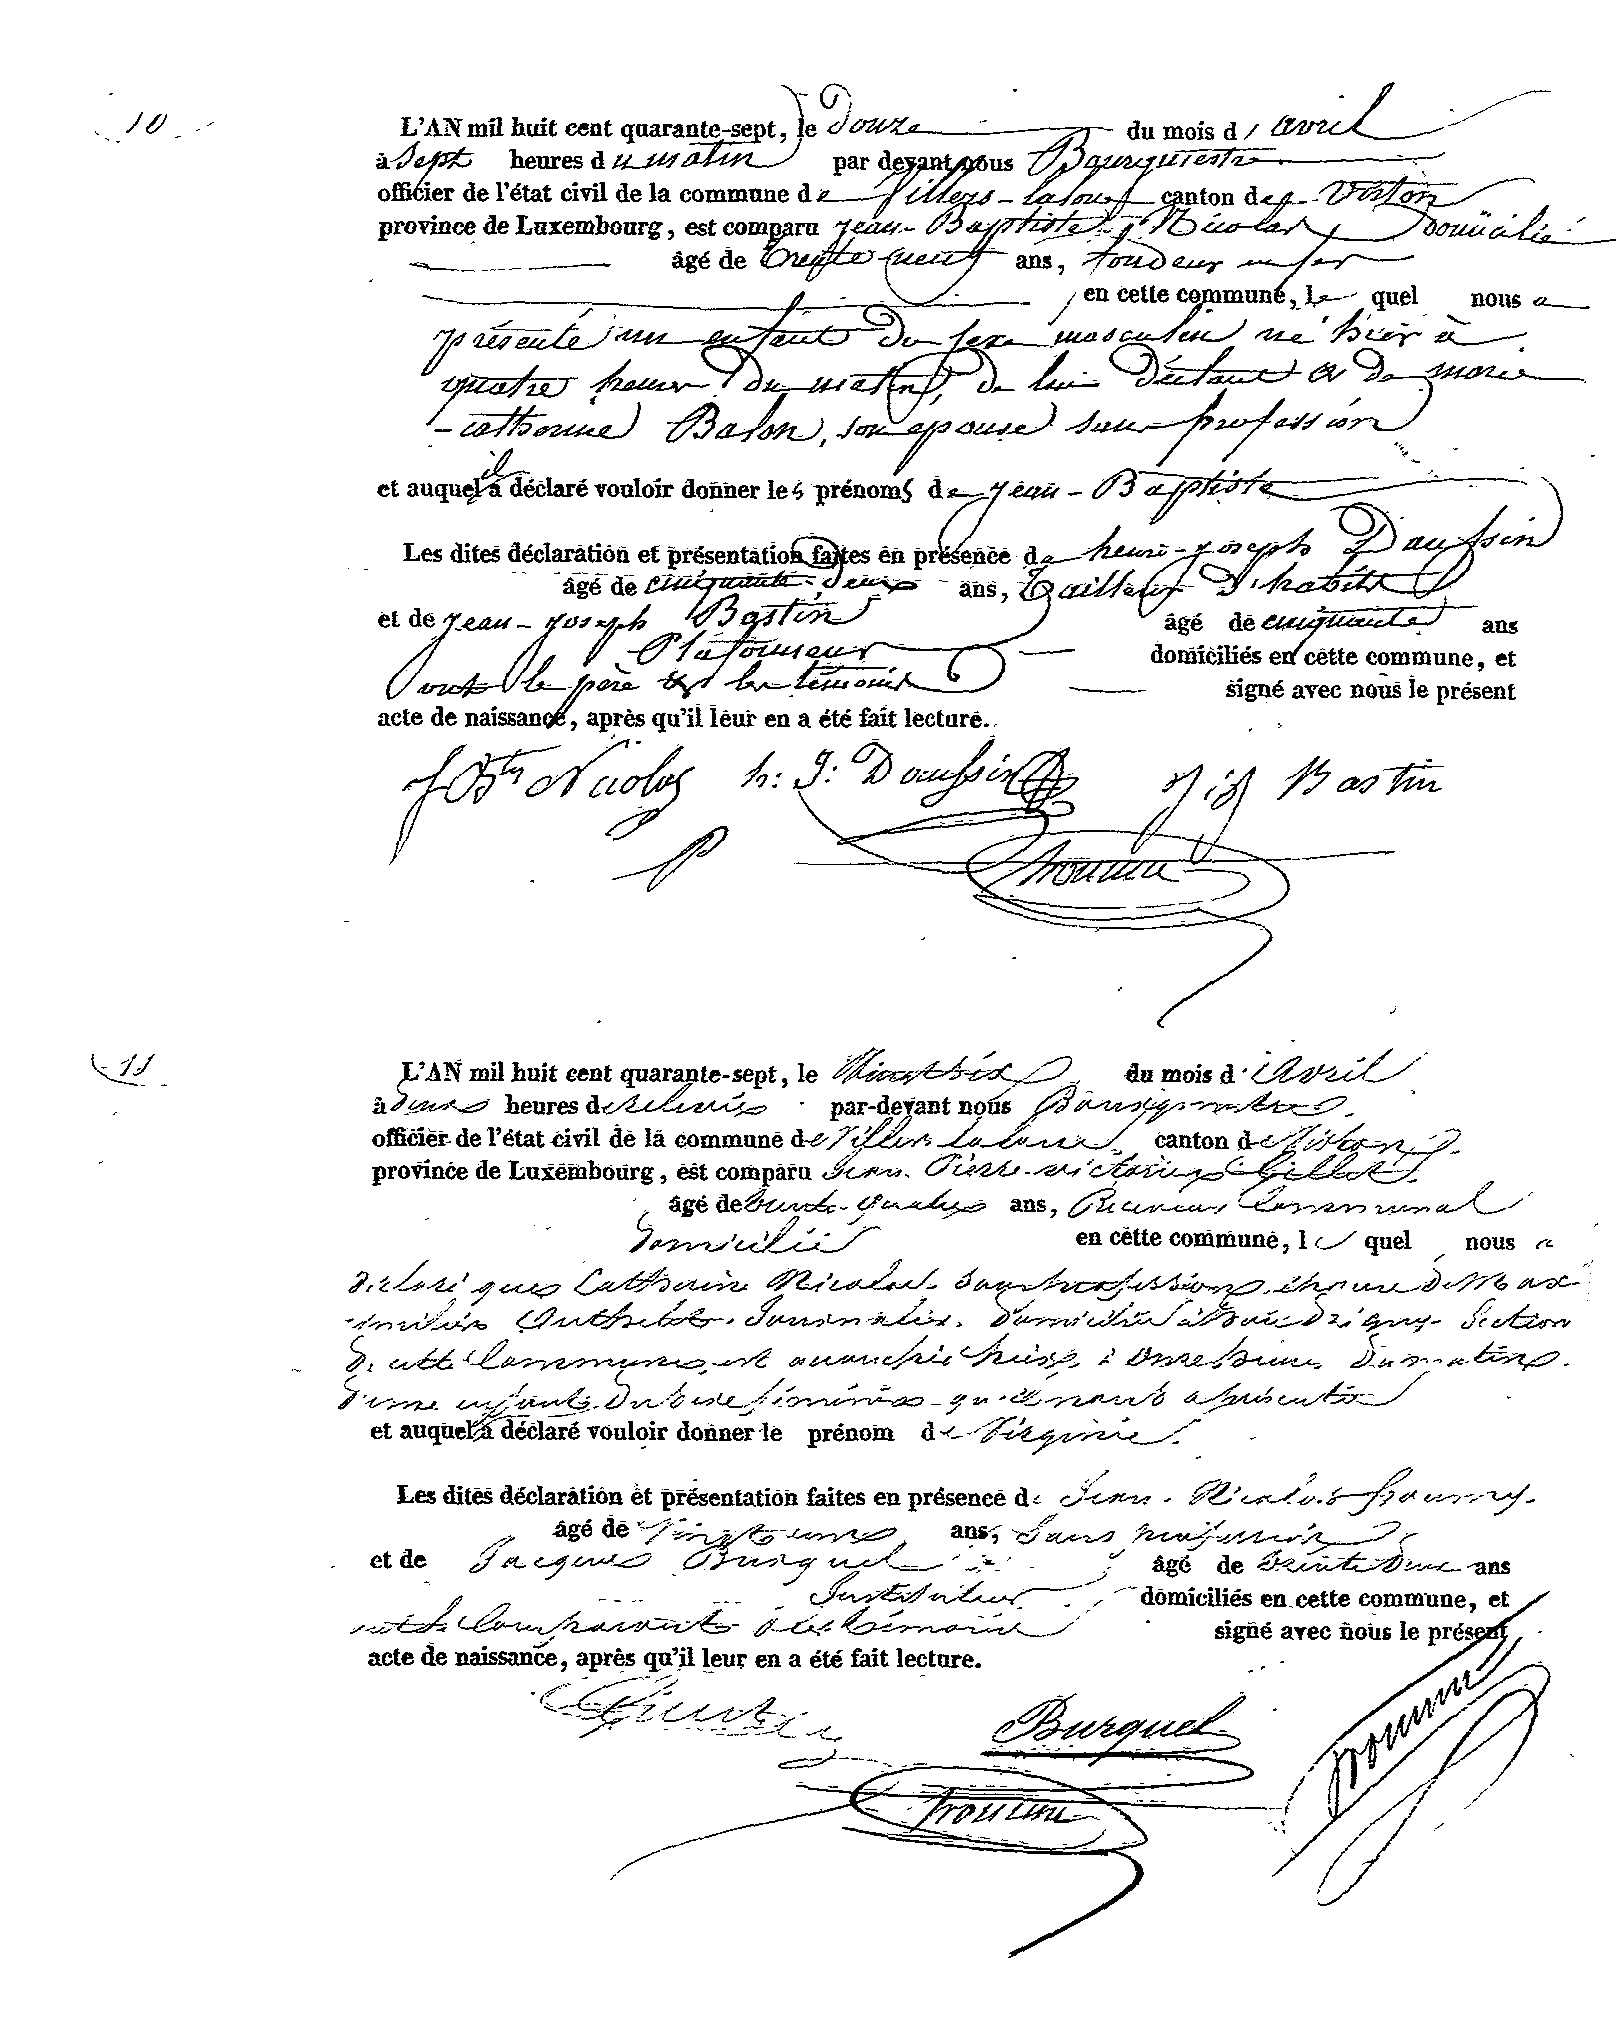 10
L'AN mil huit cent quarante-sept, le Douze du mois d'avril
à Sept heures du matin par devant nous Bourguiestre
officier de l'état civil de la commune de Villers-laloue canton de Virton
province de Luxembourg, est comparu jean-Baptiste Nicolas, Domicilié
âgé de trente neuf ans, fondeur en fer
en cette commune, le quel nous a
présenté un enfant du sexe masculin né hier à
quatre heures du matin, de lui déclarant et de marie
-catherine Balon, son epouse sans profession
et auquel il a déclaré vouloir donner les prénoms de jean-Baptiste
Les dites déclaration et présentation faites en présence de henri-joseph Daussin
âgé de cinquante-deux ans, tailleur d'habits
et de jean-joseph Bastin âgé de cinquante ans
Plafonneur domiciliés en cette commune, et
ont le père et les témoins signé avec nous le présent
acte de naissance, après qu'il leur en a été fait lecture.
J Bte Nicolas h: J: Daussin J: J: Bastin
11
L'AN mil huit cent quarante-sept, le Vingt six du mois d'Avril
à deux heures de relevée par-devant nous Bourgmestre
officier de l'état civil de la commune de Villers laloue canton de Virton
province de Luxembourg, est comparu Jean Pierre victorien Gillet
âgé de trente-quatre ans, Receveur Communal
Domicilié en cette commune, le quel nous a
déclaré que Catherine Nicolas sans profession, épouse de Max
imilien Authelet Journalier, domicilié à Houdrigny Section
de cette Commune, est accouchée hier à onze heures du matin
d'une enfant du sexe féminin qu'il nous a présenté
et auquel il a déclaré vouloir donner le prénom de Virginie.
Les dites déclaration et présentation faites en présence de Jean Nicolas
âgé de Vingt ans, Sans profession
et de Jacques Burquel âgé de trente deux ans
Instituteur domiciliés en cette commune, et
ont le Comparant et les témoins signé avec nous le présent
acte de naissance, après qu'il leur en a été fait lecture.
Burquel